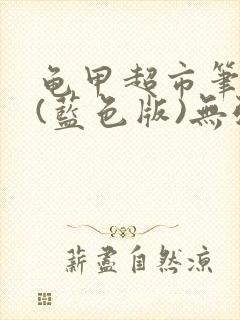 龟甲超市筆
(藍色版)無
薪盡自然涼